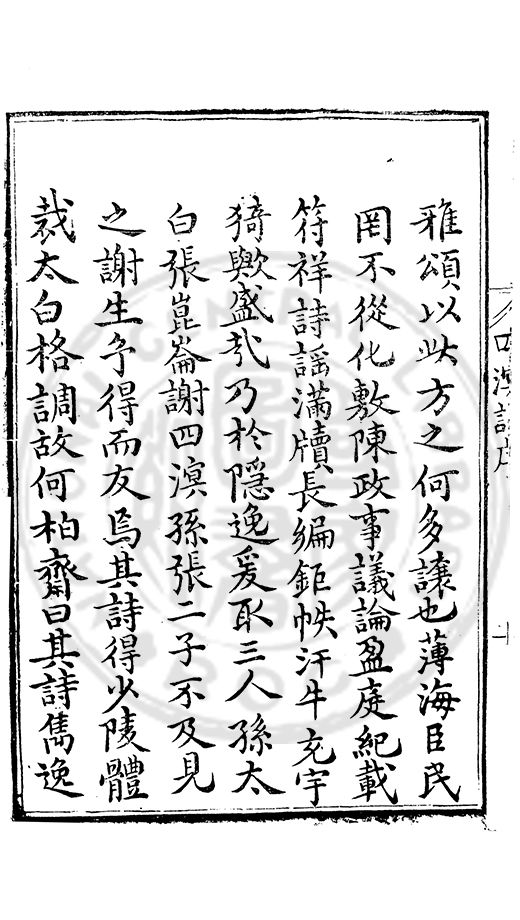 雅頌以此方之何多讓也薄海臣民
罔不從化敷陳政事議論盈庭紀載
符祥詩謡滿牘長編鉅帙汗牛充宇
猗歟盛哉乃於隱逸爰取三人孫太
白張崑崙謝四溟孫張二子不及見
之謝生予得而友焉其詩得少陵體
裁太白格調故何柏齋曰其詩雋逸